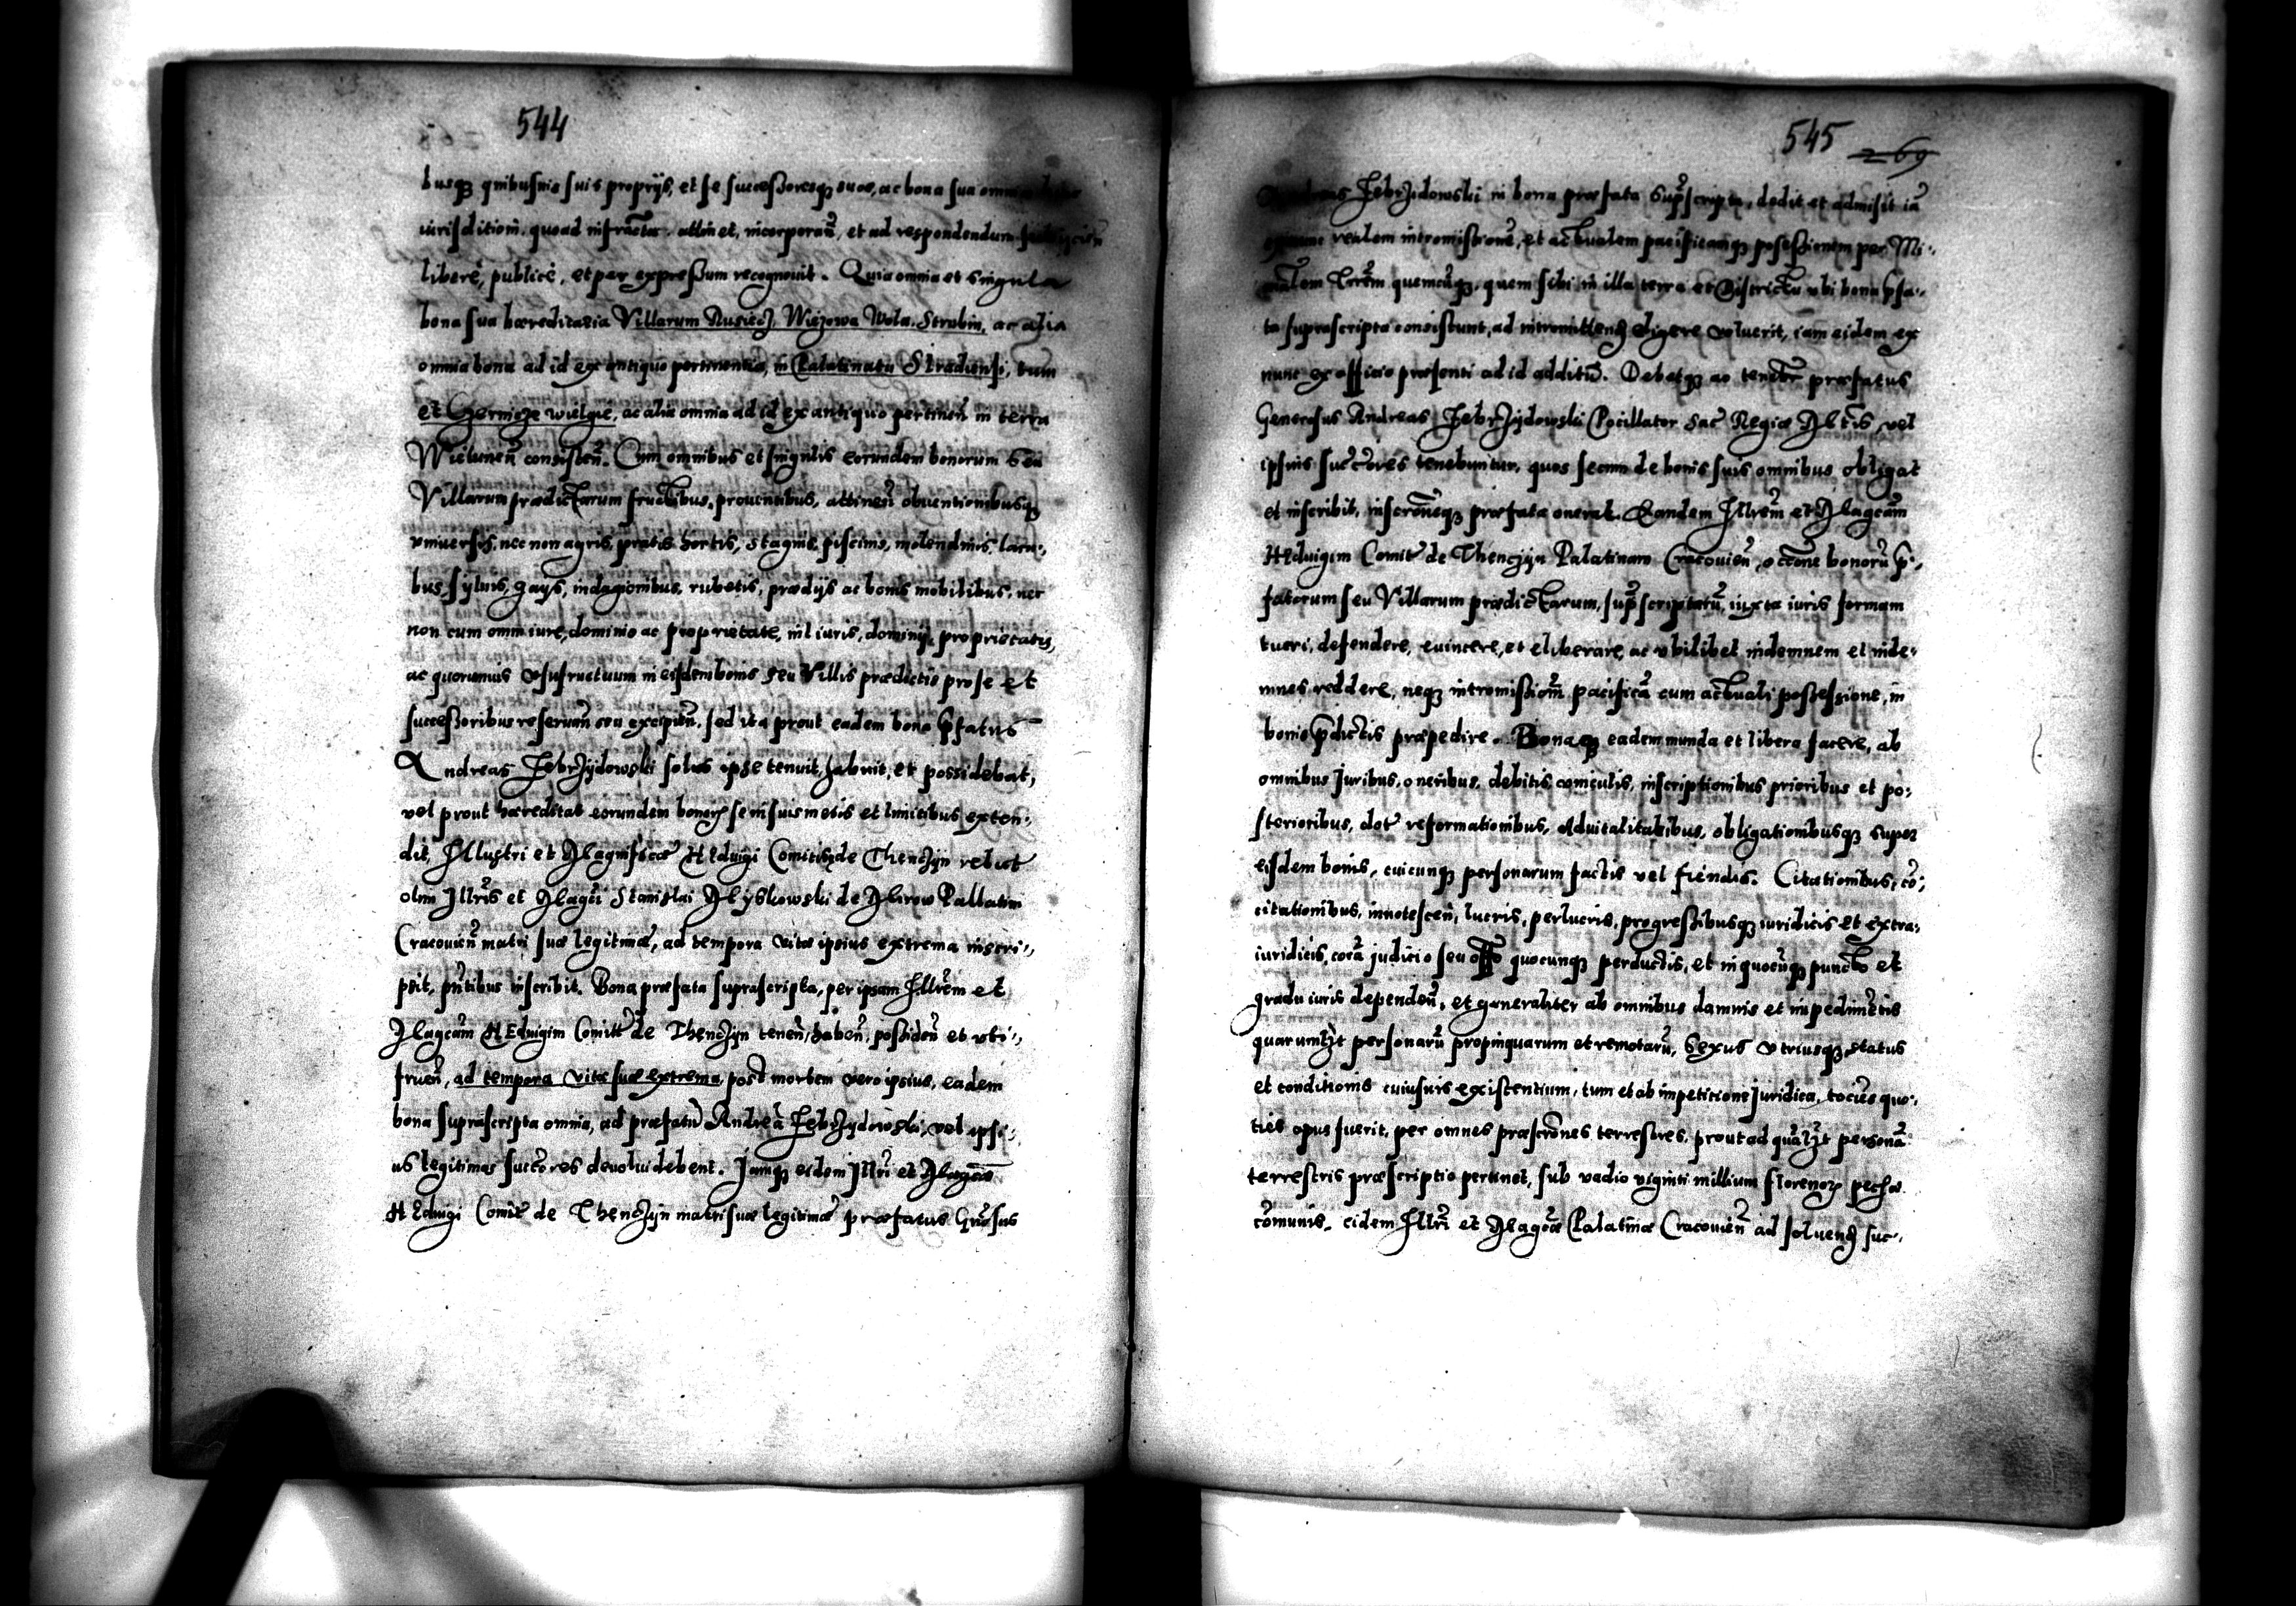 544
busq quibusuis suis proprijs, et se successoresq suos, ac bona sua
iurisdictioni, quoad infracta attinet, incorporan, et ad respondendum
liberè, publicè, et per expressum recognouit. Quia omnia et singula
bona sua hæreditaria Villarum Rusiecz, Wiezowa Wola, Strobin, ac alia
omnia bona ad id ex antiquo pertinentia, in Palatinatu Siradiensi, tum
et Czermoze wielgie, ac alia omnia ad id ex antiquo pertinen in terra
Wielunen consisten. Cum omnibus et singulis eorundem bonorum seu
Villarum prædictarum fructibus, prouentibus, attinen obuentionibusq
vniuersis, nec non agris, pratis, hortis, stagnis, piscinis, molendinis, lacu-,
bus, syluis, gays, indaginibus, rubetis, prædijs ac bonis mobilibus, nec
non cum omni iure, dominio ac proprietate, nil iuris, dominij, proprietatis,
ac quorumuis vsufructuum in eisdem bonis seu Villis prædictis pro se et
successoribus reseruan seu excipien, sed ita prout eadem bona pfatus
Andreas Zebrzydowski solus ipse tenuit, habuit, et possidebat,
vel prout hæreditat eorundem bonor se in suis metis et limitibus exten-,
dit, Illustri et Magnificæ Hedwigi Comitis de Thenczyn relict
olim Illris et Magci Stanislai Myskowski de Mirow Pallatini
Cracouien matri suæ legitimæ, ad tempora vitæ ipsius extrema inscri-,
psit, pntibus inscribit. Bona præfata suprascripta, per ipsam Illrem et
Magcam Hedwigim Comitt de Thenczyn tenen, haben, possiden et vti-,
fruen, ad tempora vitæ suæ extrema, post mortem vero ipsius, eadem
bona suprascripta omnia, ad præfatu Andreã Zebrzydowski, vel ipsi-,
us legitimos succores deuolui debent. Iamq eidem Illri et Magcæ
Hedwigi Comit de Thenczyn matri suæ legitimæ præfatus Gnrosus
545 269
Andreas Zebrzydowski in bona præfata suprscripta, dedit et admisit iã
realem intromissionẽ, et actualem pacificamq possessionem per Mi-,
trrem quemcũq, quem sibi in illa terra et Districtu vbi bona pfa-,
ta suprascripta consistunt, ad intromittend eligere voluerit, iam eidem ex
nunc ex officio præsenti ad id additũ. Debetq ac tenetr præfatus
Generosus Andreas Zebrzydowski Pocillator Sac Regiæ Mtis vel
ipsius succores tenebuntur, quos secum de bonis suis omnibus obligat
et inscribit, inscroneq præfata onerat. Eandem Illrem et Magcam
Hedwigim Comit de Thenczyn Palatinam Cracouien, occone bonorũ p-,
fatorum seu Villarum prædictarum, suprscriptarũ, iuxta iuris formam
tueri, defendere, euincere, et eliberare, ac vbilibet indemnem et inde-,
mnes reddere, neq intromissionẽ pacificã cum actuali possessione, in
bonis pdictis præpedire. Bonaq eadem munda et libera facere, ab
omnibus Iuribus, oneribus, debitis, comiculis, inscriptionibus prioribus et po-,
sterioribus, dot reformationibus, Aduitalitatibus, obligationibusq super
eisdem bonis, cuicunq personarum factis vel fiendis. Citationibus, cõ-,
citationibus, innotescen, lucris, perlucris, progressibusq iuridicis et extra-,
iuridicis, corã judicio seu offo quocunq perductis, et in quocũq puncto et
gradu iuris dependen, et generaliter ab omnibus damnis et impedimẽtis
quarumlzt personarũ propinquarum et remotarũ, sexus vtriusq status
et conditionis cuiusuis existentium, tum et ab impetitione Iuridica, tocies quo-,
ties opus fuerit, per omnes præscrones terrestres, prout ad qualzt personã
terrestris præscriptio pertinet, sub vadio viginti millium florenor pecuæ
cõmunis, eidem Illri et Magcæ Palatinæ Cracouien ad soluend suc-,